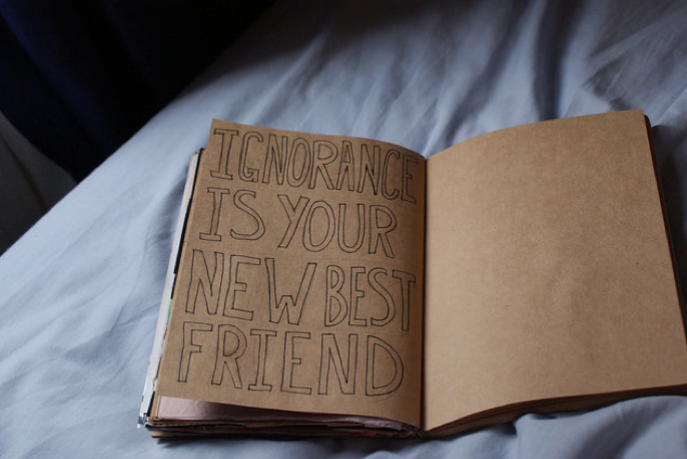 IGNORANCE
IS YOUR
NEW BEST
FRIEND